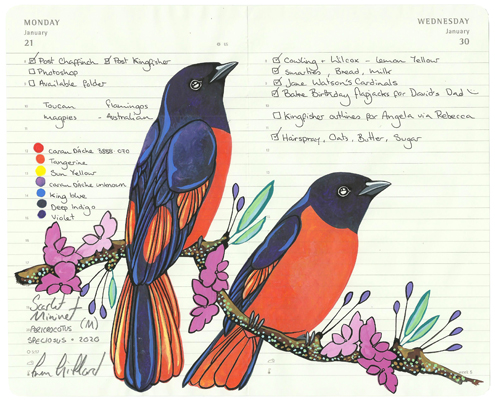 MONDAY
January
21
WEDNESDAY
January
30
Post Chaffinch Post Kingfisher
Photoshop
Available folder
Toucan Flamingos
magpies - Australian
Caran D'Ache 070
Tangerine
Sun Yellow
Caran D'Ache unknown
King blue
Deep Indigo
Violet
Scarlet
Minivet
(M)
PERICROCOTUS
SPECIOSUS - 2020
Cowling + Wilcox - Lemon Yellow
Smarties, Bread, Milk
Jane Watson's Cardinals
Bake Birthday flapjacks for David's Dad
Kingfisher outlines for Angela via Rebecca
Hairspray, Oats, Butter, Sugar